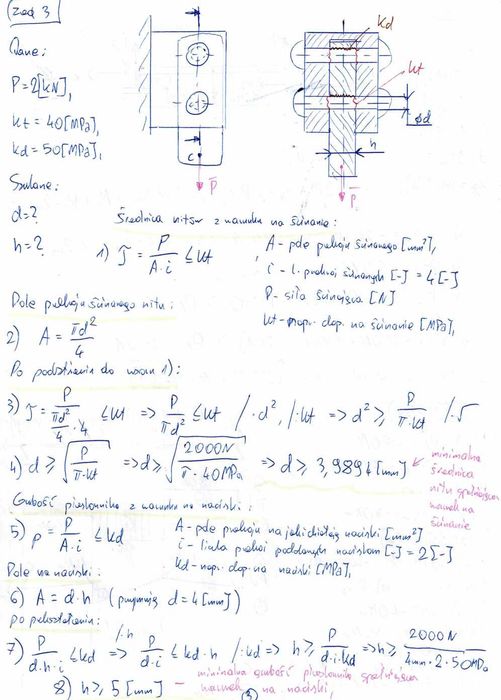 Zad 3
Dane:
P=2[kN],
kt = 40[MPa],
kd = 50[MPa],
Szukane:
d=?
h=?
kd
kt
ød
h
c
P
P
Średnica nitów z warunku na ścinanie:
1) τ = P/(A·i) ≤ kt , A - pole przekroju ścinanego [mm²],
i - l. przekroi ścinanych [-] = 4[-]
P - siła ścinająca [N]
kt - napr. dop. na ścinanie [MPa],
Pole przekroju ścinanego nitu:
2) A = πd²/4
Po podstawieniu do wzoru 1):
3) τ = P/(πd²/4 · 4) ≤ kt => P/(πd²) ≤ kt /·d², /:kt => d² ≥ P/(π·kt) /√
4) d ≥ √(P/(π·kt)) => d ≥ √(2000N/(π·40MPa)) => d ≥ 3,9894[mm]
minimalna
średnica
nitu spełniająca
warunek na
ścinanie
Grubość płaskownika z warunku na naciski:
5) p = P/(A·i) ≤ kd A - pole przekroju na jaki działają naciski [mm²]
i - liczba przekroi poddanych naciskom [-] = 2[-]
kd - napr. dop. na naciski [MPa],
Pole na naciski:
6) A = d·h (przyjmuję d=4[mm])
po podstawieniu:
7) P/(d·h·i) ≤ kd /·h => P/(d·i) ≤ kd·h /:kd => h ≥ P/(d·i·kd) => h ≥ 2000N/(4mm·2·50MPa)
8) h ≥ 5[mm] - minimalna grubość płaskownika spełniająca
warunek na naciski